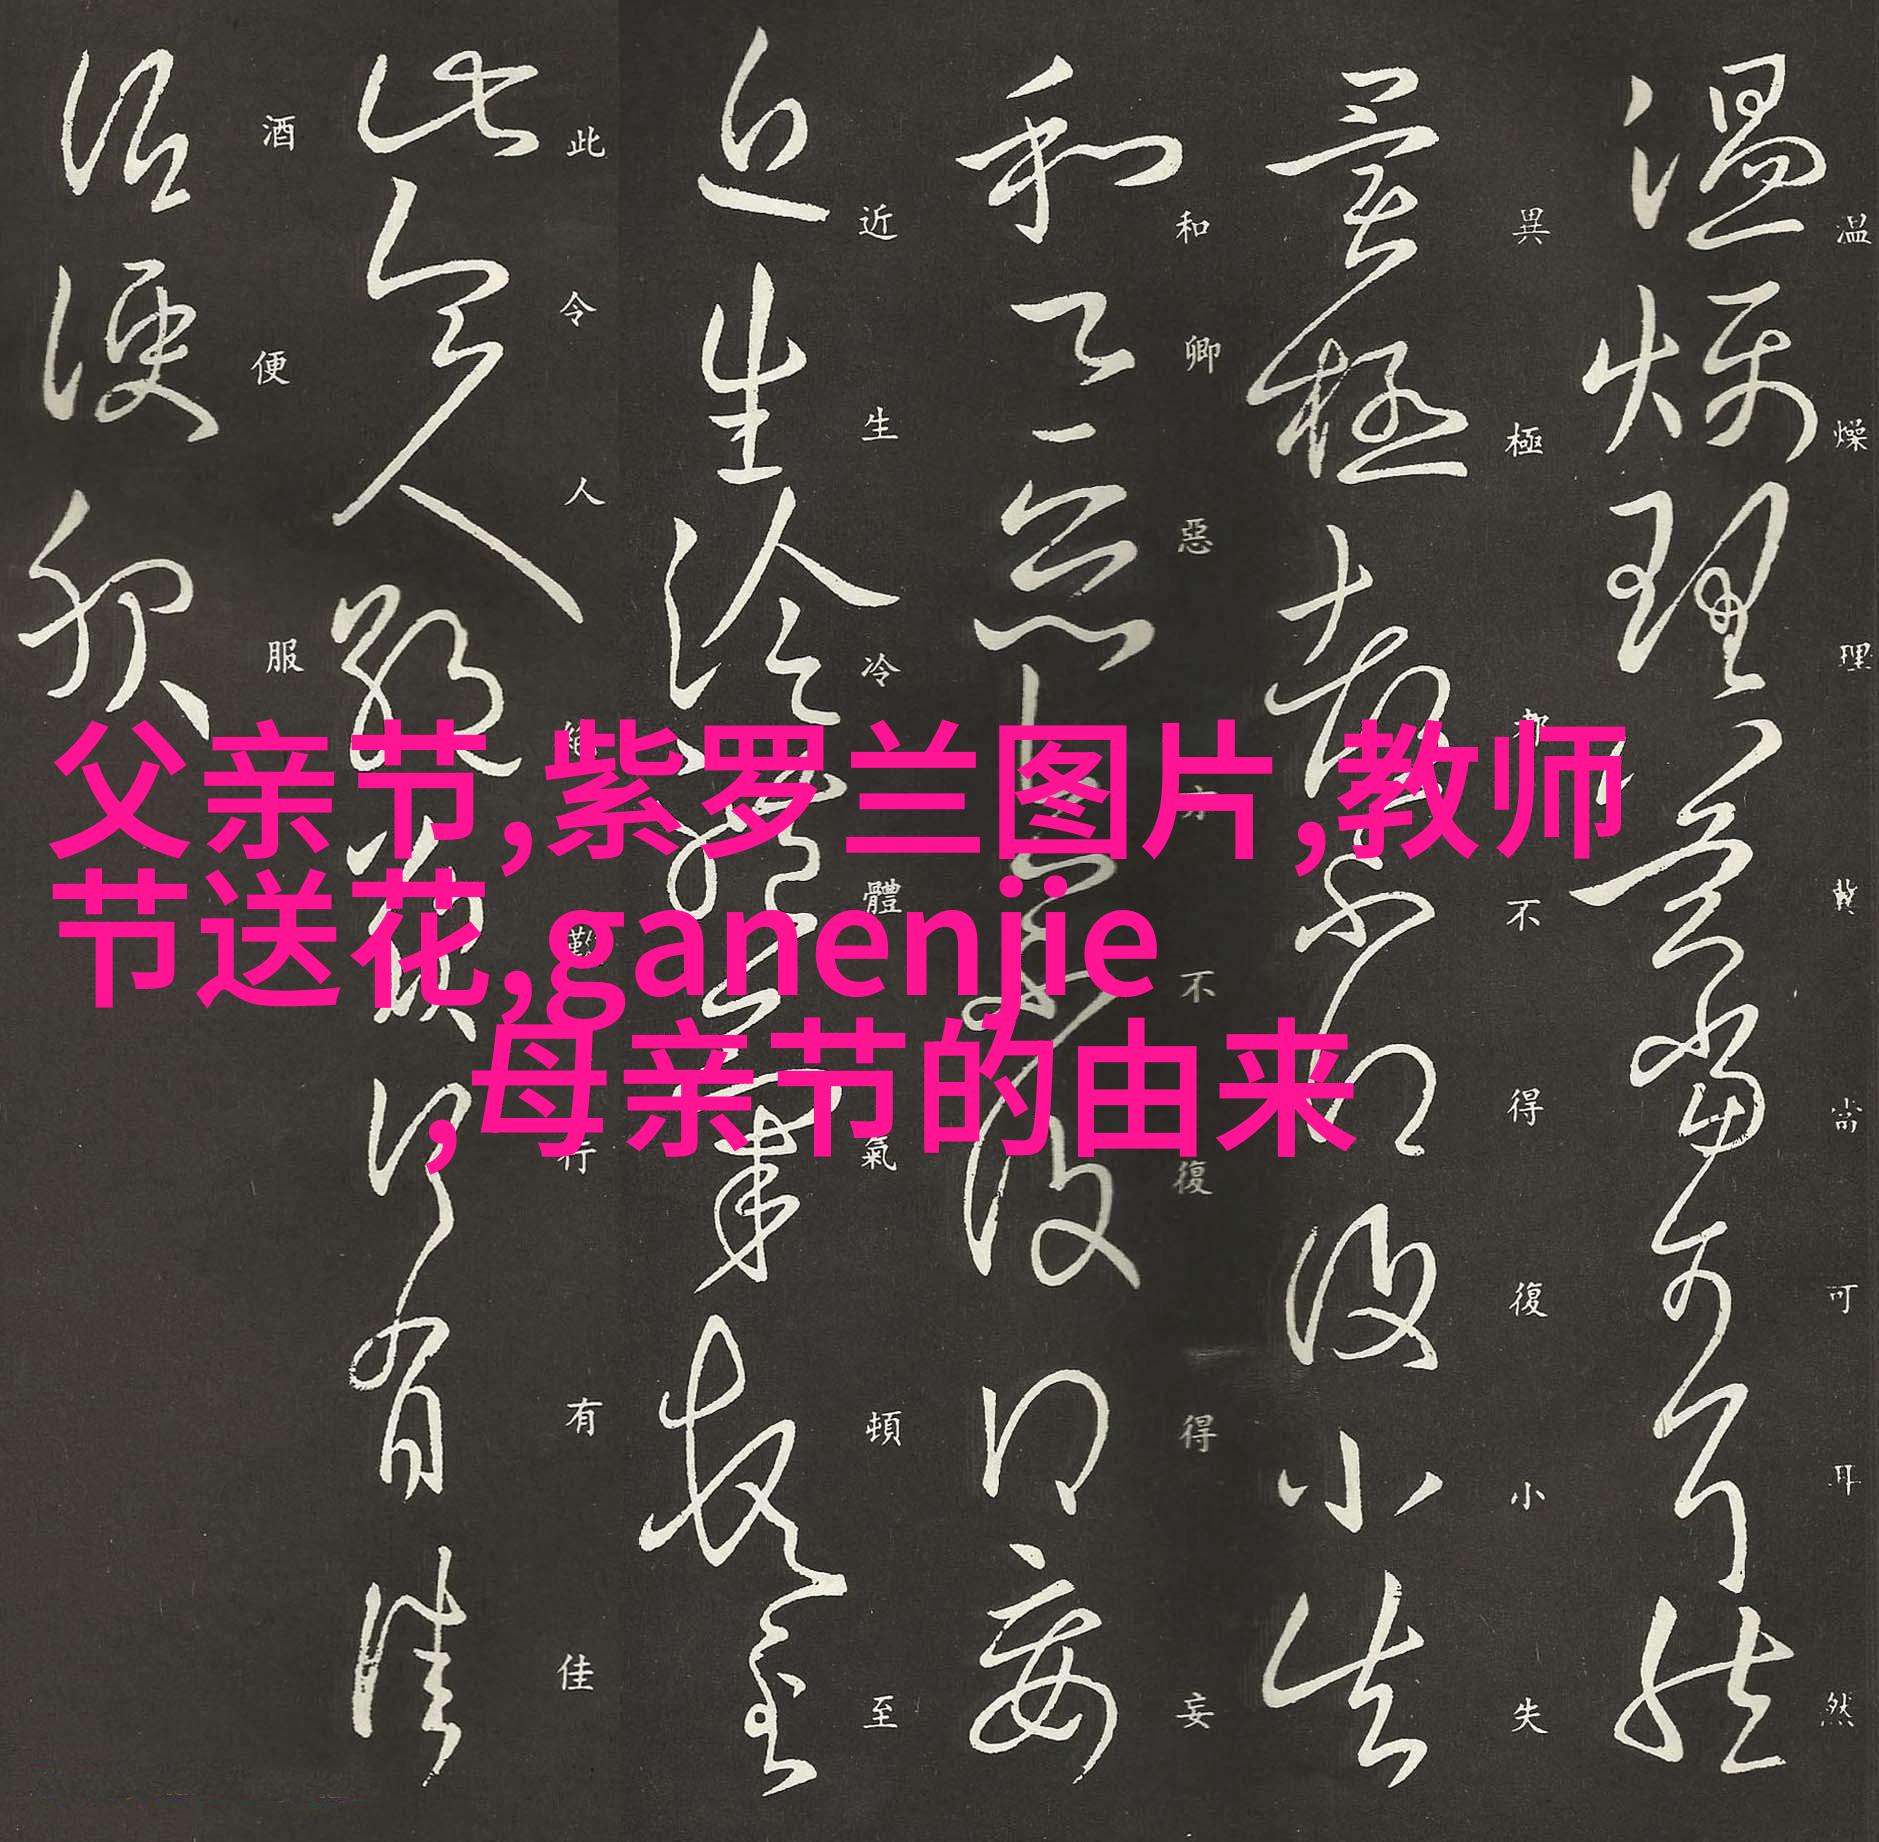 父亲节,紫罗兰图片,教师
节送花,ganenjie
,母亲节的由来
温燥理冀當可耳然
異極都不得復小失
和卿惡不復得妄
近生冷體氣頓至
此令人絕歎行有佳
酒便服